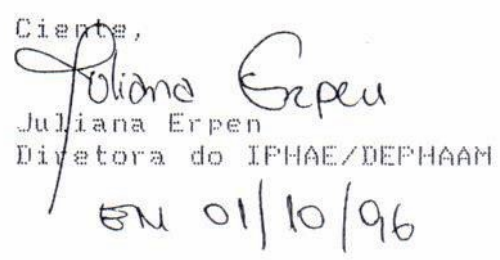 Ciente,
Juliana Erpen
Juliana Erpen
Diretora do IPHAE/DEPHAAM
EM 01/10/96